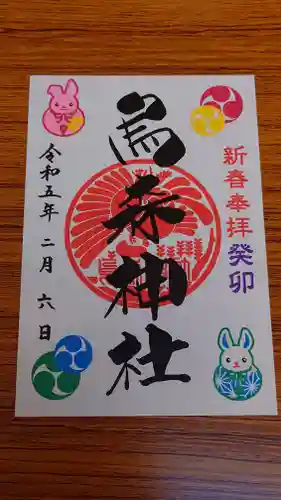 新春奉拝癸卯
烏森神社
令和五年二月六日